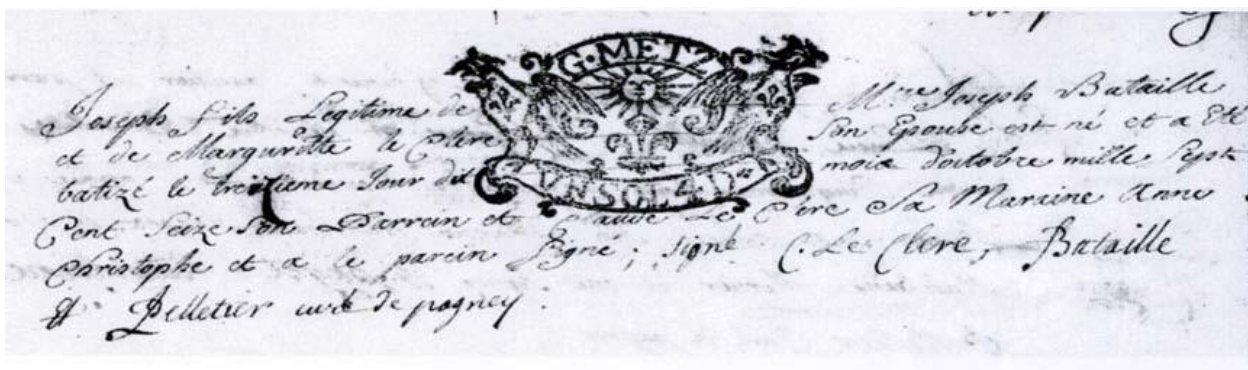 G. METZ
Joseph fils Legitime de Mtre Joseph Bataille
et de Margueritte le Clere Son Epouse est né et a Eté
batizé le treizieme Jour dit mois d'octobre mille Sept
VN SOL 4. Drs
Cent Seize Son Parrein et Claude Le Clere Sa Maraine Anne
Christophe et a le parein Signé; signé C. Le Clere, Bataille
et Pelletier curé de pagney.